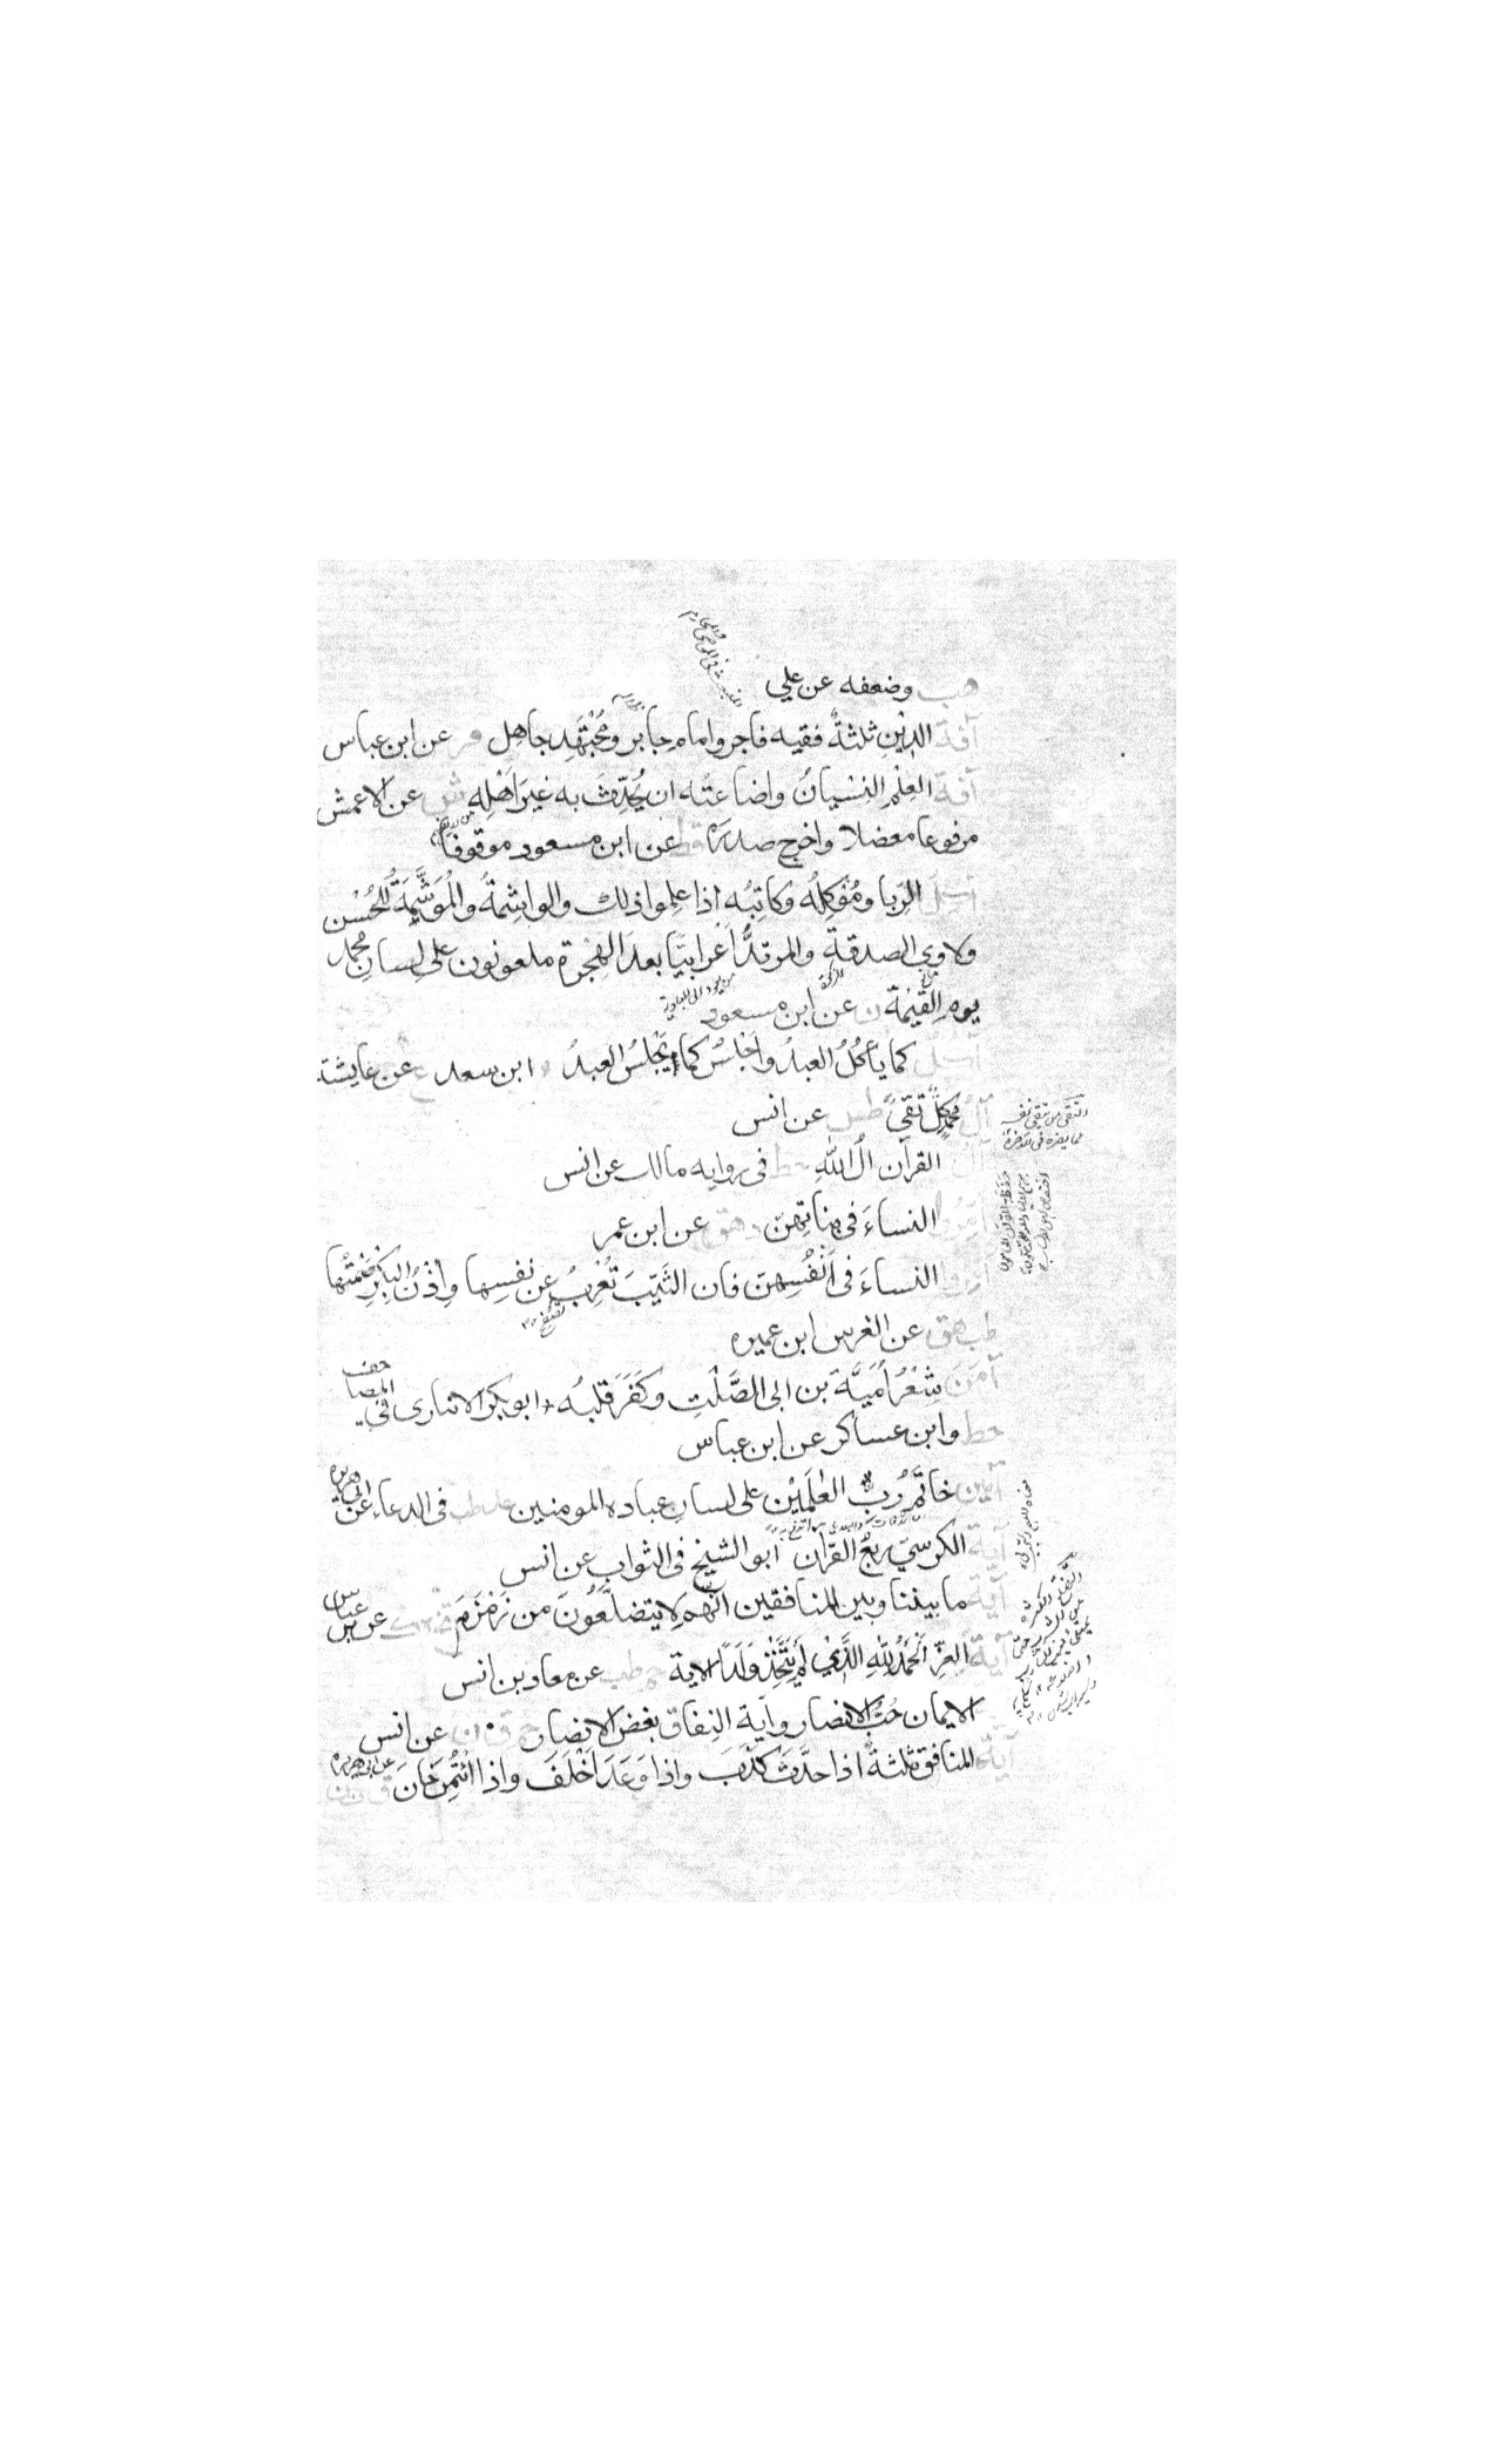 هب وضعفه عن علي
آفة الدِّينِ ثلثةٌ فقيه فاجر وامام جابر ومُجْتَهِد جاهِل فر عن ابن عباس
آفة العِلْمِ النِسْيانُ واضاعتُه ان يُحَدِّثَ به غيرَ اَهْلِهِ ش عن الاعمش
مرفوعا معضلا واخرج صدره عن ابن مسعود موقوفًا
آكل الرِّبا ومُؤكِلُه وكاتِبُه اذا علِموا ذلك والواشِمةُ والمُوَشَّمَةُ لِلحُسْن
ولاوي الصدقةِ والمرتدُّ اَعرابيًّا بعدَ الهِجرة ملعونون على لسانِ محمد
يوم القِيٰمة ن عن ابن مسعود
آكُلُ كما يأكُلُ العبدُ واَجْلِسُ كما يَجْلِسُ العبدُ ابن سعد ع عن عايشة
آلُ محمدٍ كلُّ تقيٍّ طس عن انس
آلُ القرآن آلُ اللهِ خط فى رواية مالك عن انس
آمِرُوا النساءَ فى بناتِهِنّ د هق عن ابن عمر
آمروا النساءَ فى اَنْفُسِهِنّ فان الثَيّبَ تُعْرِبُ عن نفسِها وإذْنُ البِكْرِ صَمْتُها
طب هق عن العرس ابن عميره
آمَنَ شِعْرُ اُمَيَّةَ بن ابى الصَّلْتِ وكَفَرَ قلبُه ابو بكر الانبارى فى المصاحف
خط وابن عساكر عن ابن عباس
آمين خاتَمُ رَبِّ العٰلَمِيْن على لسانِ عباده المومنين عد طب فى الدعاء عن ابى هريره
آية الكرسيّ رُبعُ القرآن ابو الشيخ فى الثواب عن انس
آية ما بيننا وبين المنافقين انّهم لا يتضلَّعُونَ من زَمْزَمَ عن ابن عباس
آية العِزّ الحَمْدُ لِلّهِ الَّذِيْ لَمْ يَتَّخِذْ وَلَدًا الاية حم طب عن معاد بن انس
آية الايمان حُبُّ الانصار وآية النِفاق بغضُ الانصار حم ق ن عن انس
آية المنافق ثلثةٌ اذا حدَّثَ كَذَبَ واذا وَعَدَ اَخْلَفَ واذا ائتُمِنَ خانَ ق ت ن عن ابى هريره